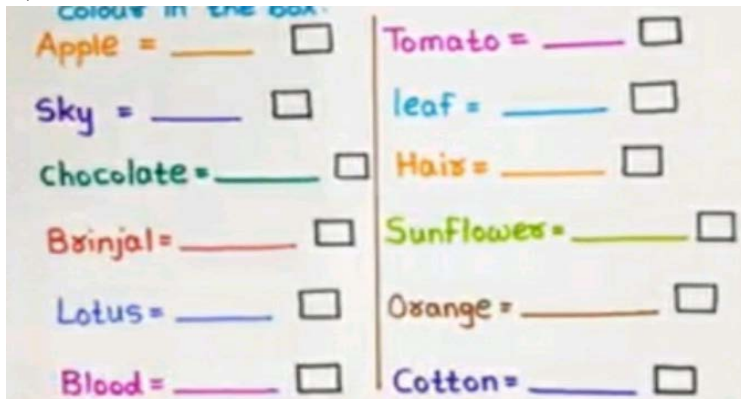 Colour in the box.
Apple = ____
Sky = ____
Chocolate = ____
Brinjal = ____
Lotus = ____
Blood = ____
Tomato = ____
leaf = ____
Hair = ____
Sunflower = ____
Orange = ____
Cotton = ____